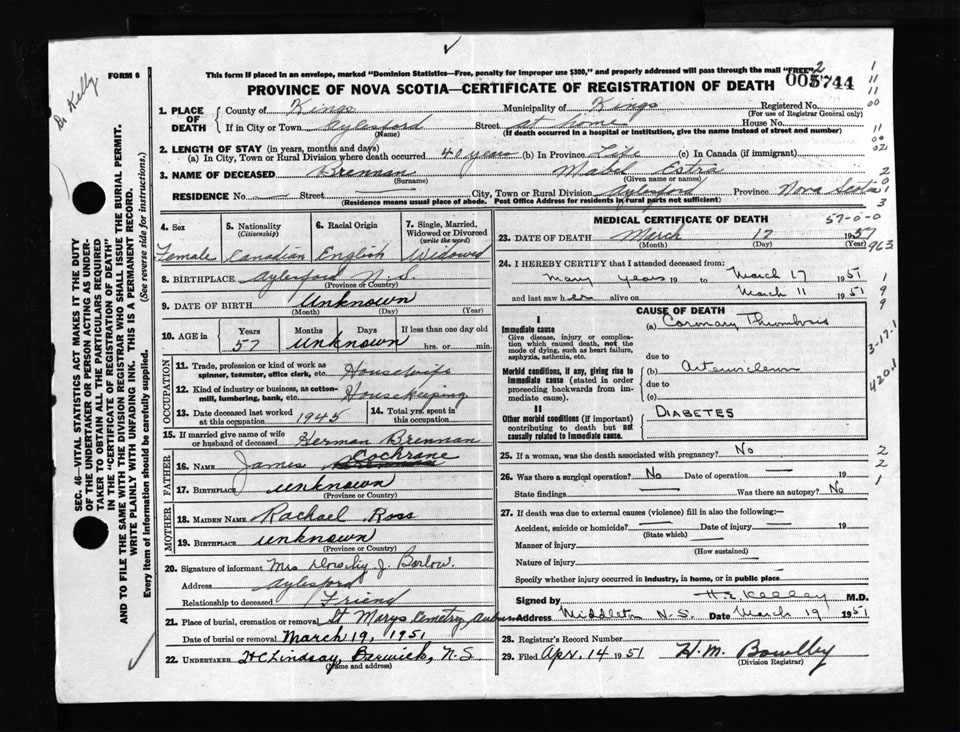 Dr Kelly
FORM 6
This form if placed in an envelope, marked "Dominion Statistics—Free, penalty for improper use $300," and properly addressed will pass through the mail "FREE"
2
PROVINCE OF NOVA SCOTIA—CERTIFICATE OF REGISTRATION OF DEATH
744
1. PLACE OF DEATH
County of Kings Municipality of Kings Registered No.
(For use of Registrar General only)
If in City or Town Aylesford Street at home House No.
(Name) (If death occurred in a hospital or institution, give the name instead of street and number)
2. LENGTH OF STAY (in years, months and days)
(a) In City, Town or Rural Division where death occurred 40 years (b) In Province Life (c) In Canada (if immigrant)
3. NAME OF DECEASED Brennan Mabel Estra
(Surname) (Given name or names)
RESIDENCE No. — Street City, Town or Rural Division Aylesford Province Nova Scotia
(Residence means usual place of abode. Post Office Address for residents in rural parts not sufficient)
4. Sex 5. Nationality (Citizenship) 6. Racial Origin 7. Single, Married, Widowed or Divorced (write the word)
Female Canadian English Widowed
8. BIRTHPLACE Aylesford N.S.
(Province or Country)
9. DATE OF BIRTH Unknown
(Month) (Day) (Year)
10. AGE in Years Months Days If less than one day old
57 unknown hrs. or min.
OCCUPATION
11. Trade, profession or kind of work as spinner, teamster, office clerk, etc. Housewife
12. Kind of industry or business, as cotton-mill, lumbering, bank, etc. Housekeeping
13. Date deceased last worked at this occupation 1945 14. Total yrs. spent in this occupation
15. If married give name of wife or husband of deceased Herman Brennan
FATHER
16. NAME James Cochrane
17. BIRTHPLACE unknown
(Province or Country)
MOTHER
18. MAIDEN NAME Rachael Ross
19. BIRTHPLACE unknown
(Province or Country)
20. Signature of informant Mrs Dorothy J. Barlow.
Address Aylesford
Relationship to deceased Friend
21. Place of burial, cremation or removal St Marys Cemetry Auburn
Date of burial or removal March 19, 1951
22. UNDERTAKER H C Lindsay, Berwick, N.S.
(Name and address)
MEDICAL CERTIFICATE OF DEATH
57-0-0
23. DATE OF DEATH March 17 1951
(Month) (Day) (Year)
963
24. I HEREBY CERTIFY that I attended deceased from:
many years 19 to March 17 1951
and last saw her alive on March 11 1951
CAUSE OF DEATH
I
Immediate cause
Give disease, injury or complication which caused death, not the mode of dying, such as heart failure, asphyxia, asthenia, etc.
(a) Coronary Thrombosis
due to
Morbid conditions, if any, giving rise to immediate cause (stated in order proceeding backwards from immediate cause).
(b)
due to
(c)
II
Other morbid conditions (if important) contributing to death but not causally related to immediate cause.
DIABETES
3-17-1
420.1
25. If a woman, was the death associated with pregnancy? No
26. Was there a surgical operation? No Date of operation 19
State findings Was there an autopsy? No
27. If death was due to external causes (violence) fill in also the following:—
Accident, suicide or homicide? Date of injury 19
(State which)
Manner of injury
(How sustained)
Nature of injury
Specify whether injury occurred in industry, in home, or in public place
Signed by H E Kelley M.D.
Address Middleton N.S. Date March 19 1951
28. Registrar's Record Number
29. Filed Apr. 14 1951 H. M. Bowlby
(Division Registrar)
SEC. 46—VITAL STATISTICS ACT MAKES IT THE DUTY
OF THE UNDERTAKER OR PERSON ACTING AS UNDER-
TAKER TO OBTAIN ALL THE PARTICULARS REQUIRED
IN THE "CERTIFICATE OF REGISTRATION OF DEATH"
AND TO FILE THE SAME WITH THE DIVISION REGISTRAR WHO SHALL ISSUE THE BURIAL PERMIT.
WRITE PLAINLY WITH UNFADING INK. THIS IS A PERMANENT RECORD.
Every item of information should be carefully supplied. (See reverse side for instructions.)